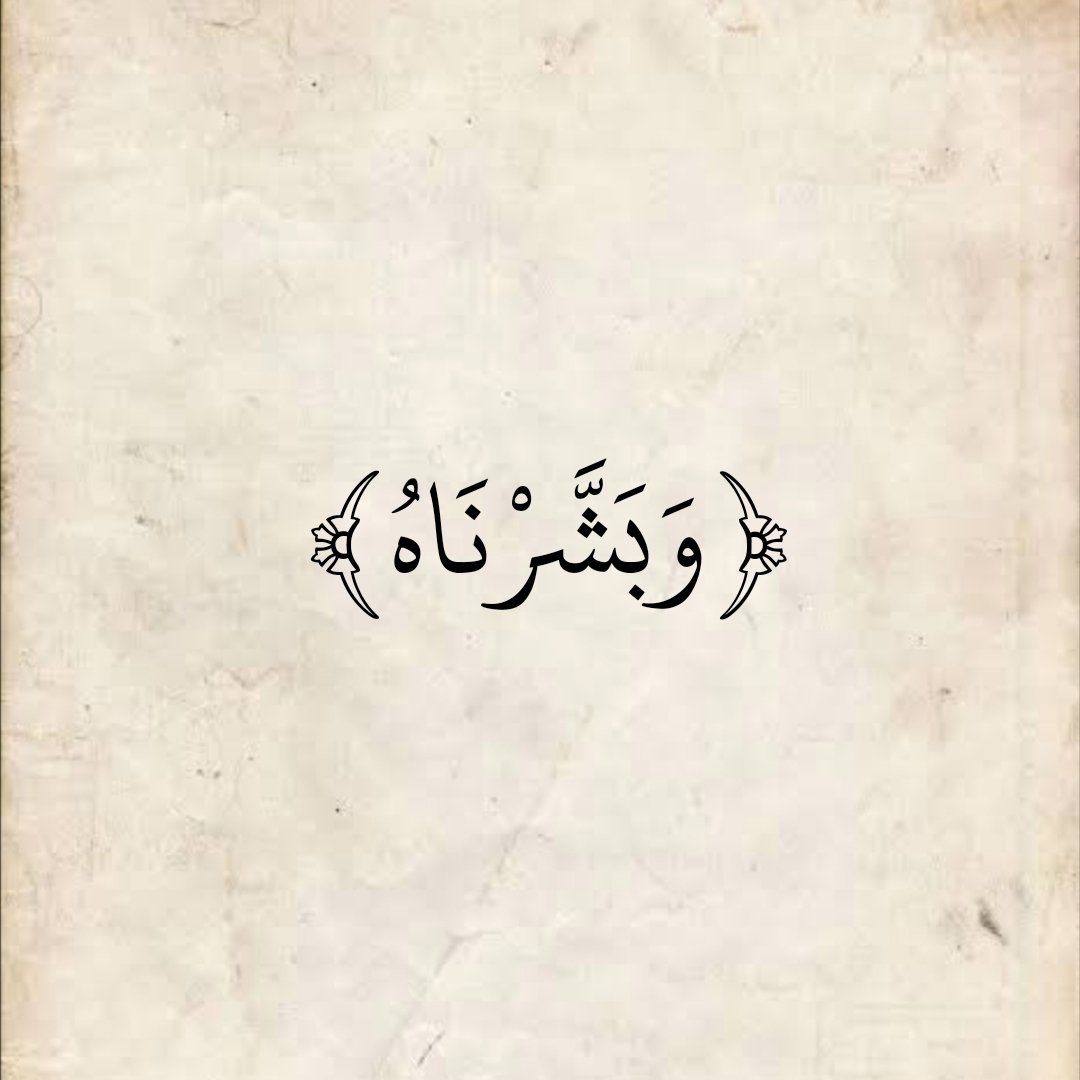 ﴿وَبَشَّرْنَاهُ﴾